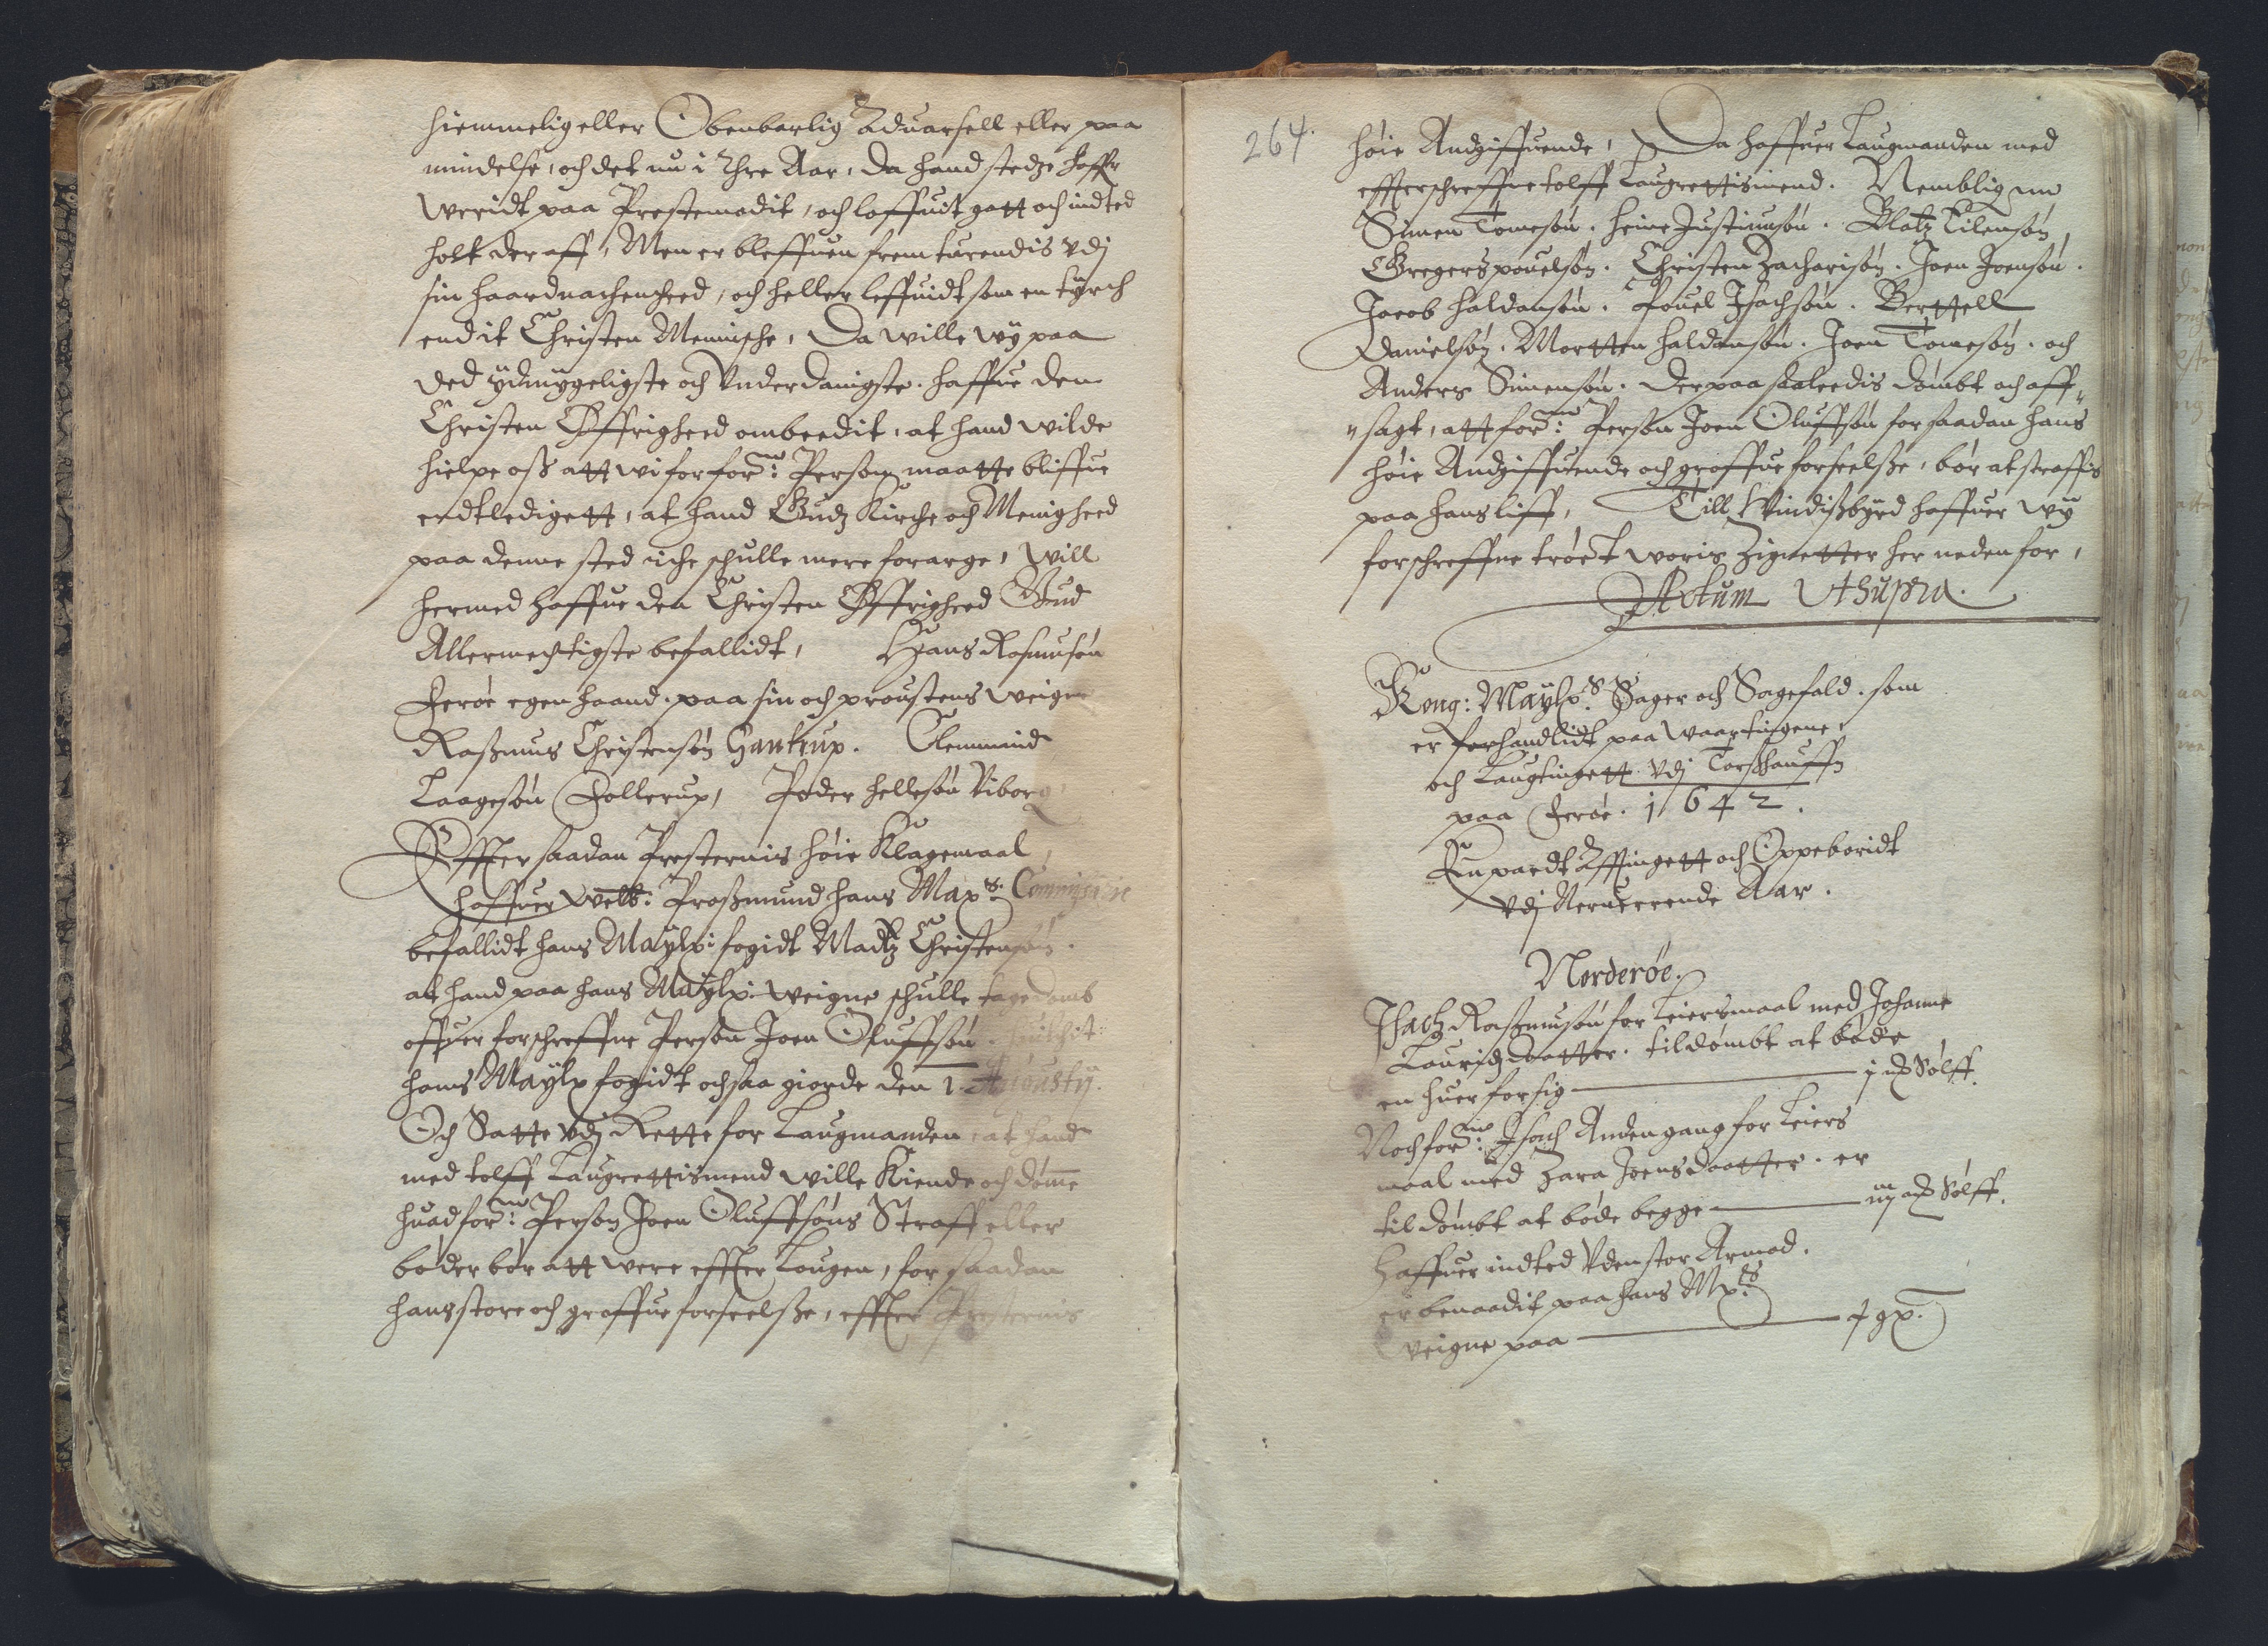 hiemmelig eller Obenbarlig aduarsell eller paa
mindelse, och det nu i thre Aar, da hand stedze haffr
weridt paa Prestemodit, och loffuit gott och indted
holt der aff, Men er bleffuen fremturendis vdj
sin haardnachenheed, och heller leffuidt som en tÿrch
end it Christen Menniske, Da wille wÿ paa
ded ÿdmÿgeligste och Vnderdanigste haffue den
Christen Øffrigheed ombeedit, at hand wilde
hielpe oss att wi for for:ne Person maatte bliffue
endtledigett, at hand Gudz Kirche och Menigheed
paa denne sted iche schulle mere forarge, Will
hermed haffue den Christen Øffrigheed Gud
Allermechtigste befallidt, Hans Rasmusøn
Ferøe egen haand. paa sin och proustens weigne
Rassmus Christensøn Gantrup. Clemmind
Laagesøn Follerup, Peder Hellesøn Viborg,
Effter saadan Presternis høie Klagemaal,
haffuer welb: Prossmund hans May:s Commissarie
befallidt hans Maÿtz: fogidt Madtz Christensøn.
at hand paa hans Maÿtz: weigne schulle tage domb
offuer forschreffne Person Joen Oluffsøn.
hans Maÿtz fogidt och saa giorde den 1. Augustÿ.
Och Satte vdj Rette for Laugmanden, at hand
med tolff Laugrettismend wille Kiende och dømme
huad for:ne Person Joen Oluffsøns Straff eller
bøder bør att were effter Lougen, for saadan
hans store och groffue forseelsse, effter Presternis
264.
høie Andgiffuende, Da haffuer Laugmanden med
effterschreffne tolff Laugrettismend. Nemblig
Simen Tomesøn. Heine Justinusøn. Olatz Tilensøn,
Gregers pouelsøn. Christen Zacharisøn. Joen Joensøn.
Jacob Haldansøn. Pouel Isachsøn. Berttell
Danielsøn. Mortten Haldansøn. Joen Tomesøn. och
Anders Simensøn. Der paa saaleedis dømbt och aff„
„sagt, att for:ne Person Joen Oluffsøn for saadan hans
høie Andgiffuende och groffue forseelsse, bør at straffis
paa hans liff, Till Vindissbÿrd haffuer wÿ
forschreffne trøct woris Zignetter her neden for,
Actum Ut supra.
Kong: Maÿtz:s Sager och Sagefald. som
er forhandlidt paa waartingene
och Laugtingett vdj Torsshauffn
paa Ferøe. 1642.
Vdj Neruerende Aar.
Norderøe.
Isach Rassmusøn for Leiersmaal med Johanne
Lauridzdaatter. tildømbt at bøde
en huer for sig — j mk Sølff.
Noch for:ne Isach Anden gang for Leiers
maal med Zara Joensdaatter. er
til dømbt at bøde begge — iiij mk Sølff.
Haffuer indted Vden stor Armod.
er benaadit paa hans May:ts
weigne paa —